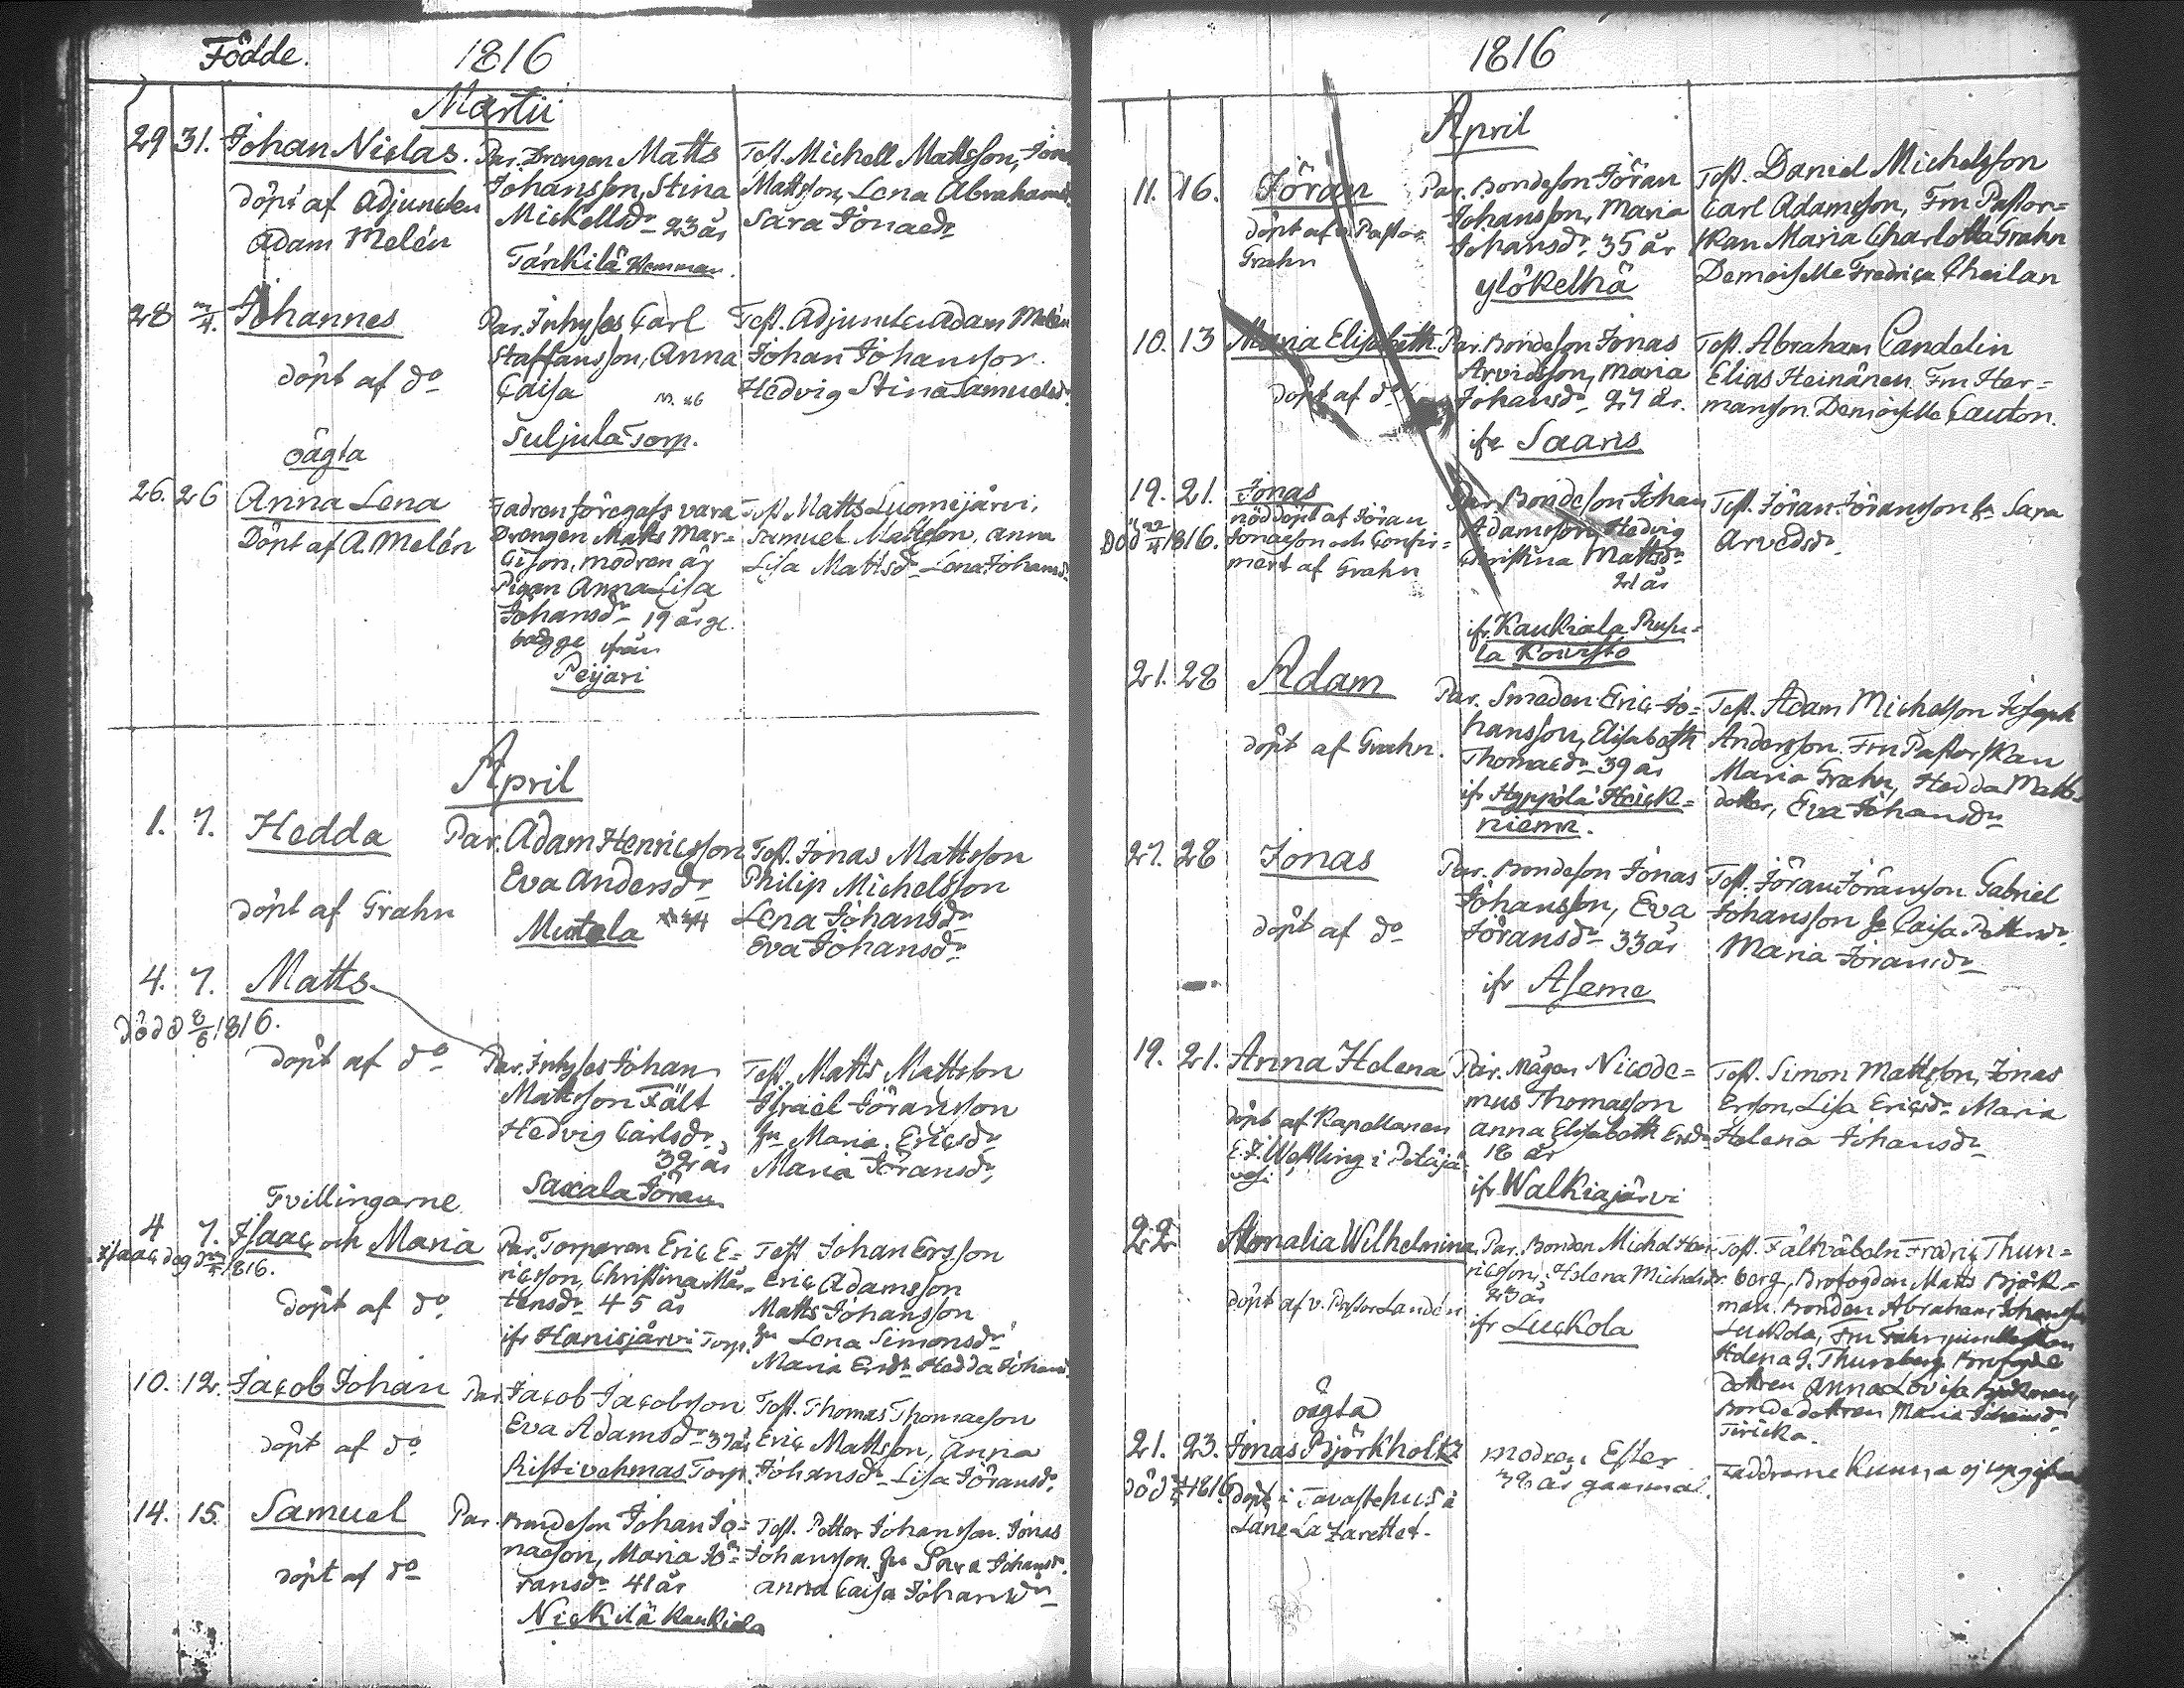 Födde. 1816
Martii
29 31. Johan Niclas. Par. Drengen Matts Johansson, Stina Mickellsdr 23 år
döpt af Adjuncten Adam Melén
Tärkilä
Test. Michell Mattsson, Mattsson, Lena Abrahamsd
Sara Jonaedr
28 Johannes
döpt af do
Par. Inhyses Carl
Staffansson, Anna
Caisa
Suljula Torp.
Test. Adjuncten Adam Melén
Johan Johansson.
Hedvig Stina Samuelsd.
oägta
26. 26 Anna Lena
Döpt af A Melén
Fadren föregafs vara
Drengen Matts
modren är
Pigan Anna Lisa
Johansdr 19 år gl.
bägge ifrån
Peijari
Test Matts Luomejärvi,
Samuel Mattsson, Anna
Lisa Mattsdr Lena Johansd
April
1. 7. Hedda
döpt af Grahn
Par. Adam Henricsson
Eva Andersdr
Mutola
Test. Jonas Mattsson
Philip Michelsson
Lena Johansdr
Eva Johansdr
4. 7. Matts
Död 8/6 1816.
döpt af do
Par. Inhyses Johan
Mattsson Fält
Hedvig Carlsdr
32 år
Saxala Jöran
Test. Matts Mattsson
Israel Jöransson
Maria Ericsdr
Maria Jöransdr
Tvillingarne
4 7. Isaac och Maria
Isaac dog 1816.
döpt af do
Par. Torparen Eric Ericsson, Christina Mårtensdr 45 år
ifr Hanisjärvi Torp.
Test Johan Ersson
Eric Adamsson
Matts Johansson
Lena Simonsdr
Maria Ersdr Hedda Johansd
10. 12. Jacob Johan
döpt af do
Par Jacob Jacobsson
Eva Adamsdr 37 år
Ristivehmas Torp.
Test. Thomas Thomasson
Eric Mattsson, Anna
Johansdr Lisa Jöransdr
14. 15. Samuel
döpt af do
Par. Bondeson Johan Jo=
nasson, Maria Jö=
ransdr 41 år
Nickilä Kaukiala
Test. Petter Johansson. Jonas
Johansson. Sara Johansdr.
Anna Caisa Johansdr
1816
April
11. 16. Jöran
döpt af v. Pastor
Grahn
Par. Bondeson Jöran
Johansson, Maria
Johansdr 35 år
Ylökelhä
Test. Daniel Michelsson
Carl Adamsson, Fru Pastor=
skan Maria Charlotta Grahn
Demoiselle Fredrica Cheilan
10. 13 Maria Elisabeth
döpt af do
Par. Bondeson Jonas
Arvidsson, Maria
Johansdr 27 år.
ifr Saaris
Test. Abraham Candelin
Elias Heinänen Fru Her=
mansson Demoiselle Cauton.
19. 21. Jonas
Död 22/4 1816.
nöddöpt af Jöran
Jonasson och Confir=
mert af Grahn
Par Bondeson Johan
Adamsson, Hedvig
Christina Mattsdr
21 år
ifr Kaukiala
la Koivisto
Test. Jöran Jöransson Sara
Arvedsdr
21. 28 Adam
döpt af Grahn.
Par. Smeden Eric Jo=
hansson, Elisabeth
Thomaedr 39 år
ifr Hyppölä Heick=
niemi.
Test. Adam Michelson Joseph
Andersson. Fru Pastorskan
Maria Grahn, Hedda Matts
dotter, Eva Johansdr
27. 28 Jonas
döpt af do
Par. Bondeson Jonas
Johansson, Eva
Jöransdr 33 år
ifr Aseme
Test. Jöran Jöransson Gabriel
Johansson Caisa Pettersdr.
Maria Jöransdr
19. 21. Anna Helena
döpt af Kapellanen
E. J. Westling i Petäjä
vesi
Par. Mågen Nicode=
mus Thomasson
Anna Elisabeth Ersdr
18 år
ifr Walkiajärvi
Test. Simon Mattsson, Jonas
Ersson, Lisa Ericsdr Maria
Helena Johansdr
22 Amalia Wilhelmina
döpt af v. Pastor Landén
Par. Bonden Michel Hen=
ricsson, Helena Michelsdr
23 år
ifr Luckola
Test. Fältväbeln Fredric Thun=
berg, Brofogden Matts Björk=
man. Bonden Abraham Johansson
Luckola, Fru
Helena J. Thunberg Brofogde
dottren Anna Lovisa Björkman,
Bondedottren Maria Johansdr
Tiricka.
oägta
21. 23. Jonas Björkholtz
död 1816
döpt i Tavastehus
Läne Lazarettet.
modren Ester
38 år gammal.
Faddrarne kunna ej uppgifvas